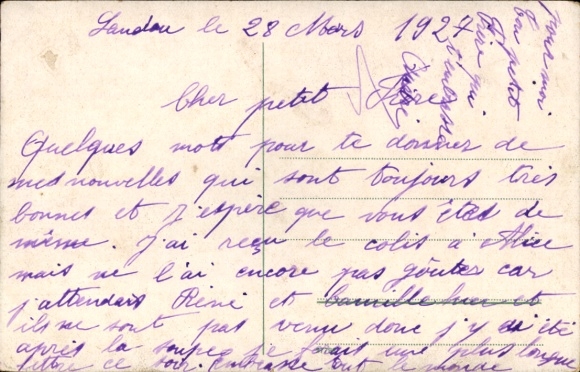 Landau le 28 Mars 1927
Cher petit Frère
Quelques mots pour te donner de
mes nouvelles qui sont toujours très
bonnes et J'espère que vous êtes de
même. J'ai reçu le colis à Alice
mais ne l'ai encore pas goûter car
j'attendais Réné et Camille hier et
ils ne sont pas venu donc j'y ai été
après la soupe je ferait une plus longue
lettre ce soir. Embrasse tout le monde
pour moi
Ton petit
frère qui
t'embrasse